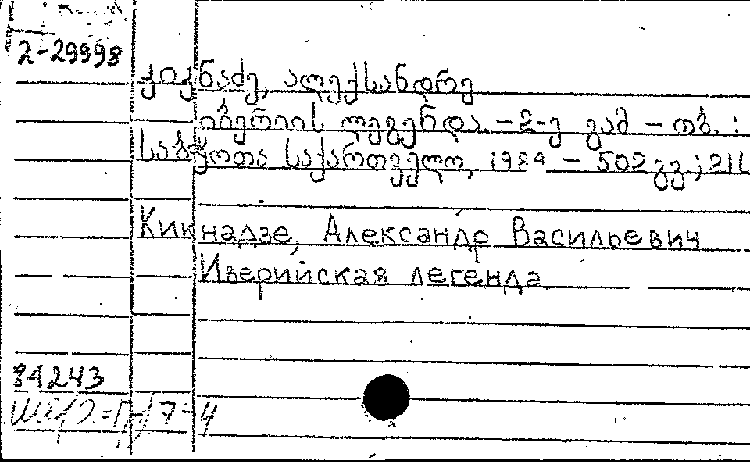 2-29998
კიკნაძე, ალექსანდრე
იბერიის ლეგენდა. – 2-ე გამ – თბ. :
საბჭოთა საქართველო, 1989 – 502 გვ ; 21
Кикнадзе, Александр Васильевич
Иверийская легенда
84243